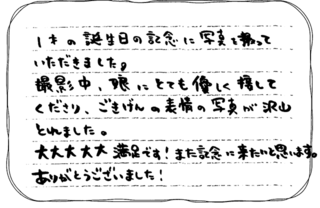 1才の誕生日の記念に写真を撮って
いただきました。
撮影中、娘にとても優しく接して
くださり、ごきげんの表情の写真が沢山
とれました。
大大大大大満足です！また記念に来たいと思います。
ありがとうございました！